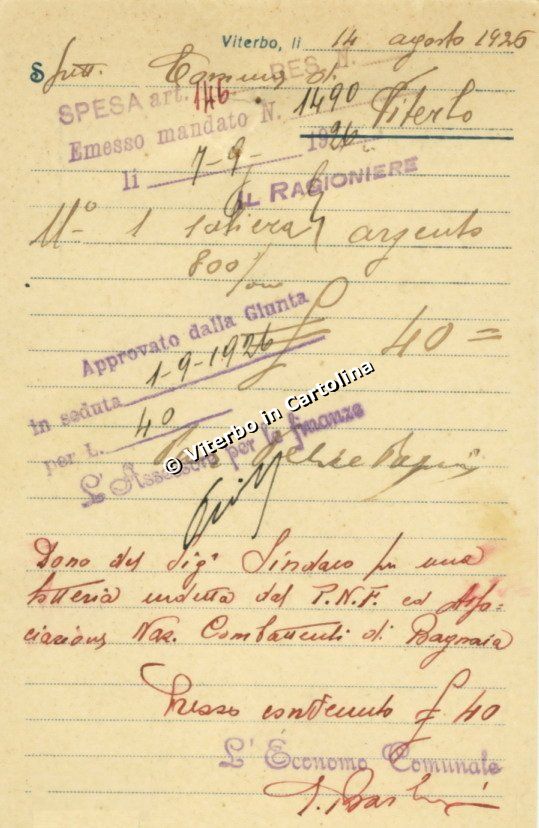 Viterbo, li 14 agosto 1926
Spett. Comune di
Viterbo
SPESA art. 146 RES.
Emesso mandato N. 1490
li 7-9- 1926
IL RAGIONIERE
N° 1 argento
800/
£ 40 =
Approvato dalla Giunta
in seduta 1-9-1926
per L. 40
L'Assessore per le finanze
© Viterbo in Cartolina
Dono del Sig. Sindaco per una
lotteria indetta dal P.N.F. ed Asso-
ciazione Naz. Combattenti di Bagnaia
Prezzo convenuto £ 40
L'Economo Comunale